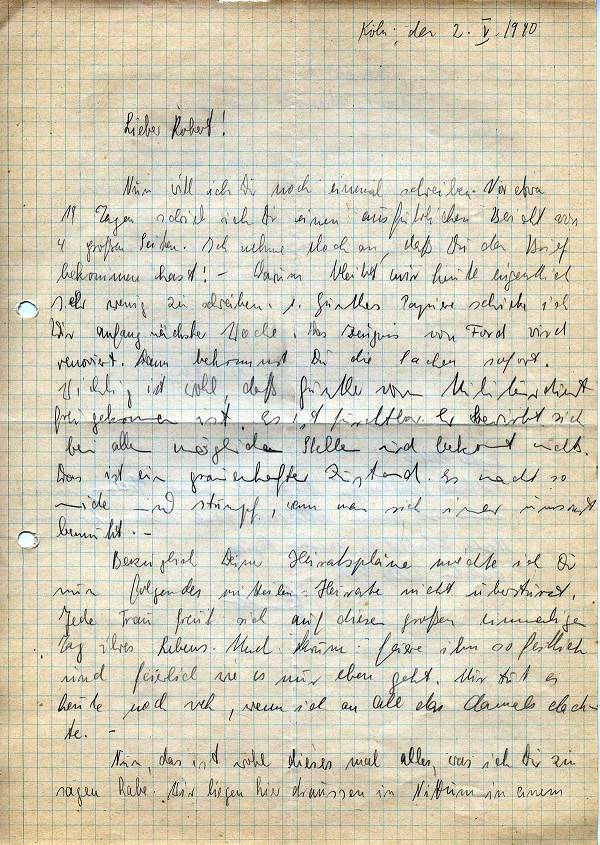 Köln, den 2. V. 1940
Lieber Robert!
Nun will ich Dir noch einmal schreiben. Vor etwa
14 Tagen schrieb ich Dir einen ausführlichen Bericht von
4 großen Seiten. Ich nehme doch an, daß Du den Brief
bekommen hast! – Darum bleibt mir heute eigentlich
sehr wenig zu schreiben. Günthers Papiere schicke ich
Dir anfang nächster Woche. Das Zeugnis von Ford wird
renoviert. Dann bekommst Du die Sachen sofort.
Wichtig ist wohl, daß Günther vom Militärdienst
freigekommen ist. Es ist furchtbar. Er bewirbt sich
bei allen möglichen Stellen und bekommt nichts.
Das ist ein grauenhafter Zustand. Es macht so
müde und stumpf, wenn man sich immer umsonst
bemüht. –
Bezüglich Deiner Heiratspläne möchte ich Dir
nur folgendes mitteilen: Heirate nicht überstürzt.
Jede Frau freut sich auf diesen großen einmaligen
Tag ihres Lebens. Und darum: feiere ihn so festlich
und feierlich wie es nur eben geht. Mir tut es
heute noch weh, wenn ich an all das damals dach-
te. –
Nun, das ist wohl dieses mal alles, was ich Dir zu
sagen habe. Wir liegen hier draussen in in einem